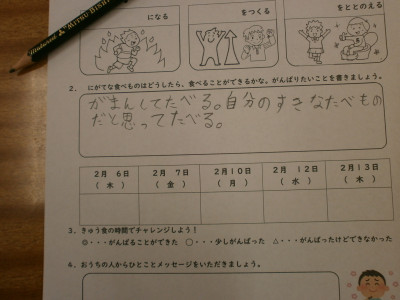 Mitsubishi
になる
をつくる
をととのえる
2. にがてな食べものはどうしたら、食べることができるかな。がんばりたいことを書きましょう。
がまんしてたべる。自分のすきなたべもの
だと思ってたべる。
2月 6日 2月 7日 2月10日 2月 12日 2月13日
(木) (金) (月) (水) (木)
3. きゅう食の時間でチャレンジしよう!
◎・・・がんばることができた ○・・・少しがんばった △・・・がんばったけどできなかった
4. おうちの人からひとことメッセージをいただきましょう。